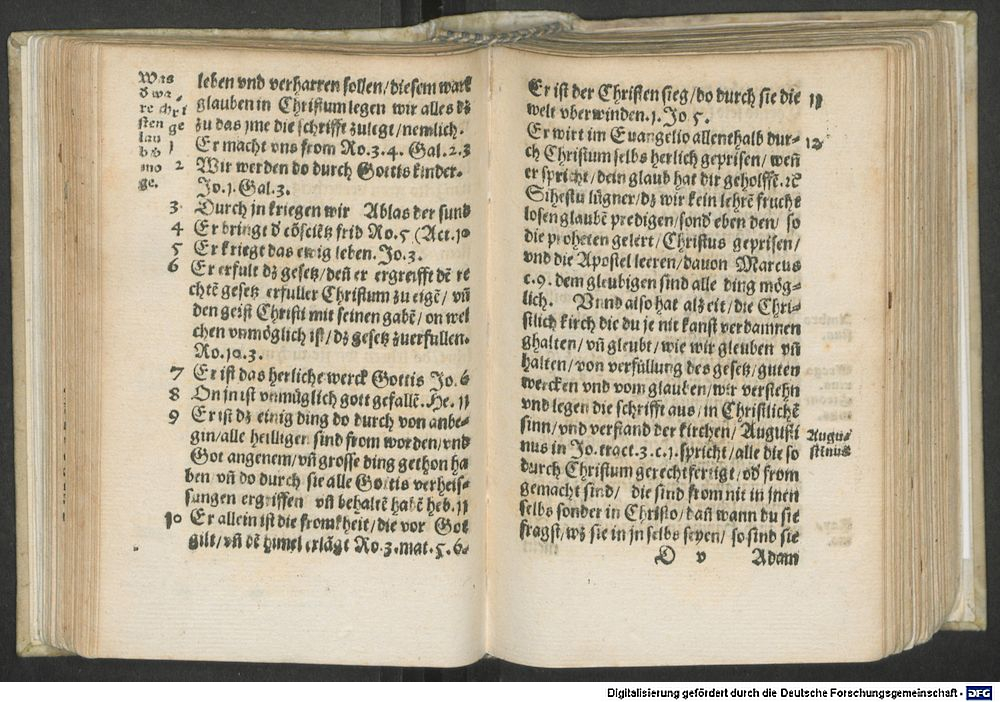 Was
d wa-
re chri
sten ge
lau
bē
mo
ge.
leben vnd verharren sollen/diesem warē
glauben in Christum legen wir alles dz
zu das jme die schrifft zulegt/nemlich.
1 Er macht vns from Ro.3.4. Gal.2.3
2 Wir werden do durch Gottis kinder.
Jo.1.Gal.3.
3 Durch jn kriegen wir Ablas der sund
4 Er bringt d cōsciētz frid Ro.5 (Act.10
5 Er kriegt das ewig leben. Jo.3.
6 Er erfult dz gesetz/deñ er ergreifft dē re
chtē gesetz erfuller Christum zu eigē/ vñ
den geist Christi mit seinen gabē/on wel
chen vnmöglich ist/dz gesetz zuerfullen.
Ro.10.3.
7 Er ist das herliche werck Gottis Jo.6
8 On jn ist vnmüglich gott gefallē. He.11
9 Er ist dz einig ding do durch von anbe-
gin/alle heilligen sind from worden/vnd
Got angenem/vñ grosse ding gethon ha
ben vñ do durch sie alle Gottis verheis-
sungen ergriffen vñ behaltē habē heb.11
10 Er allein ist die fromkheit/die vor Got
gilt/vñ dē himel erlāgt Ro.3.mat.5.6.
Er ist der Christen sieg/do durch sie die 11
welt vberwinden.1.Jo 5.
Er wirt im Euangelio allenthalb dur- 12
ch Christum selbs herlich geprisen/ weñ
er spricht/dein glaub hat dir geholffē.ꝛc̄
Sihestu lügner/dz wir kein lehrē frucht
losen glaubē predigen/sond eben den/ so
die propheten gelert/Christus geprisen/
vnd die Apostel leeren/dauon Marcus
c.9. dem gleubigen sind alle ding mög-
lich. Vnnd also hat alzeit/die Chri-
stlich kirch die du je nit kanst verdamnen
ghalten/ vñ gleubt/wie wir gleuben vñ
halten/von verfüllung des gesetz/guten
wercken vnd vom glauben/wir verstehn
vnd legen die schrifft aus/in Christlichē
sinn/vnd verstand der kirchen/ Augusti
nus in Jo.tract.3.c.1.spricht/alle die so
durch Christum gerechtfertigt/od from
gemacht sind/ die sind from nit in jnen
selbs sonder in Christo/dañ wann du sie
fragst/wz sie in jn selbs seyen/ so sind sie
O v Adam
Augu-
stinus
Digitalisierung gefördert durch die Deutsche Forschungsgemeinschaft - DFG